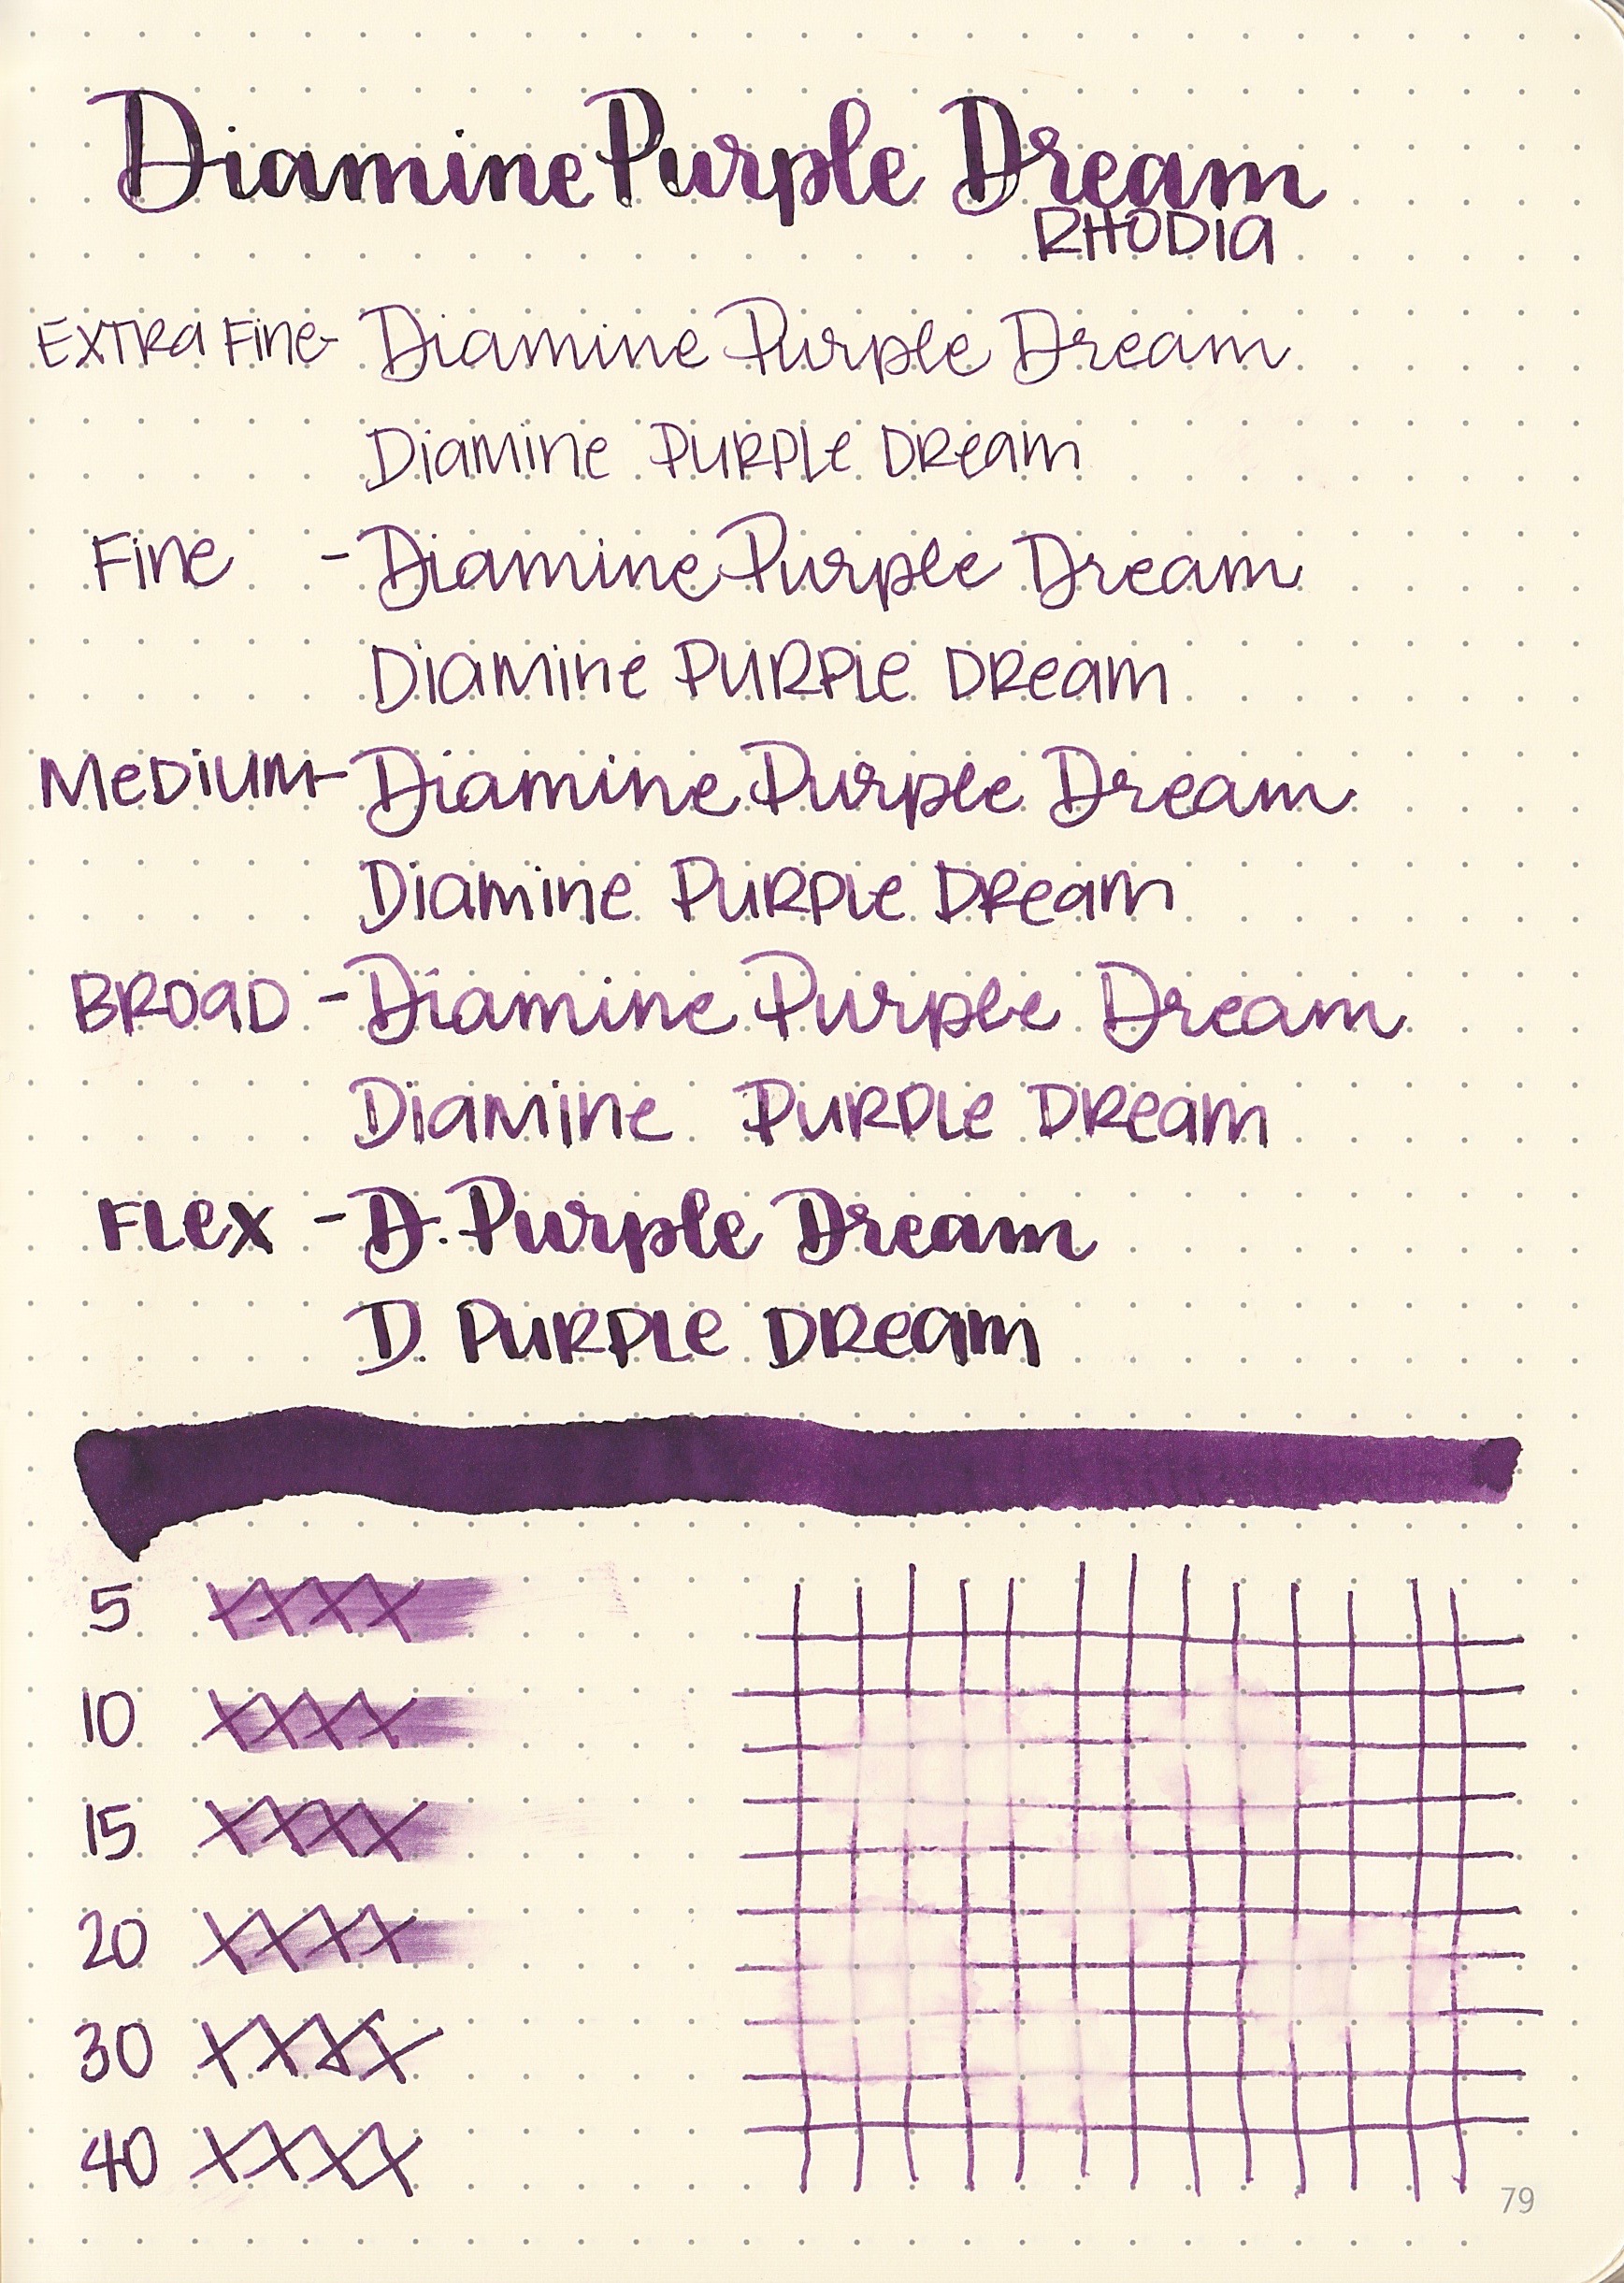 Diamine Purple Dream
RHODIA
EXTRA FINE - Diamine Purple Dream
Diamine PURPLE DREAM
Fine - Diamine Purple Dream
Diamine PURPLE DREAM
MEDIUM - Diamine Purple Dream
Diamine PURPLE DREAM
BROAD - Diamine Purple Dream
Diamine PURPLE DREAM
FLEX - D. Purple Dream
D. PURPLE DREAM
5 XXXX
10 XXXX
15 XXXX
20 XXXX
30 XXXX
40 XXXX
79